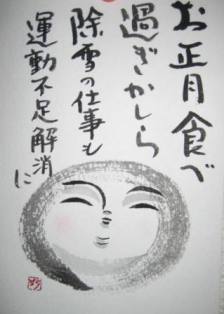 お正月食べ
過ぎかしら
除雪の仕事も
運動不足解消
に